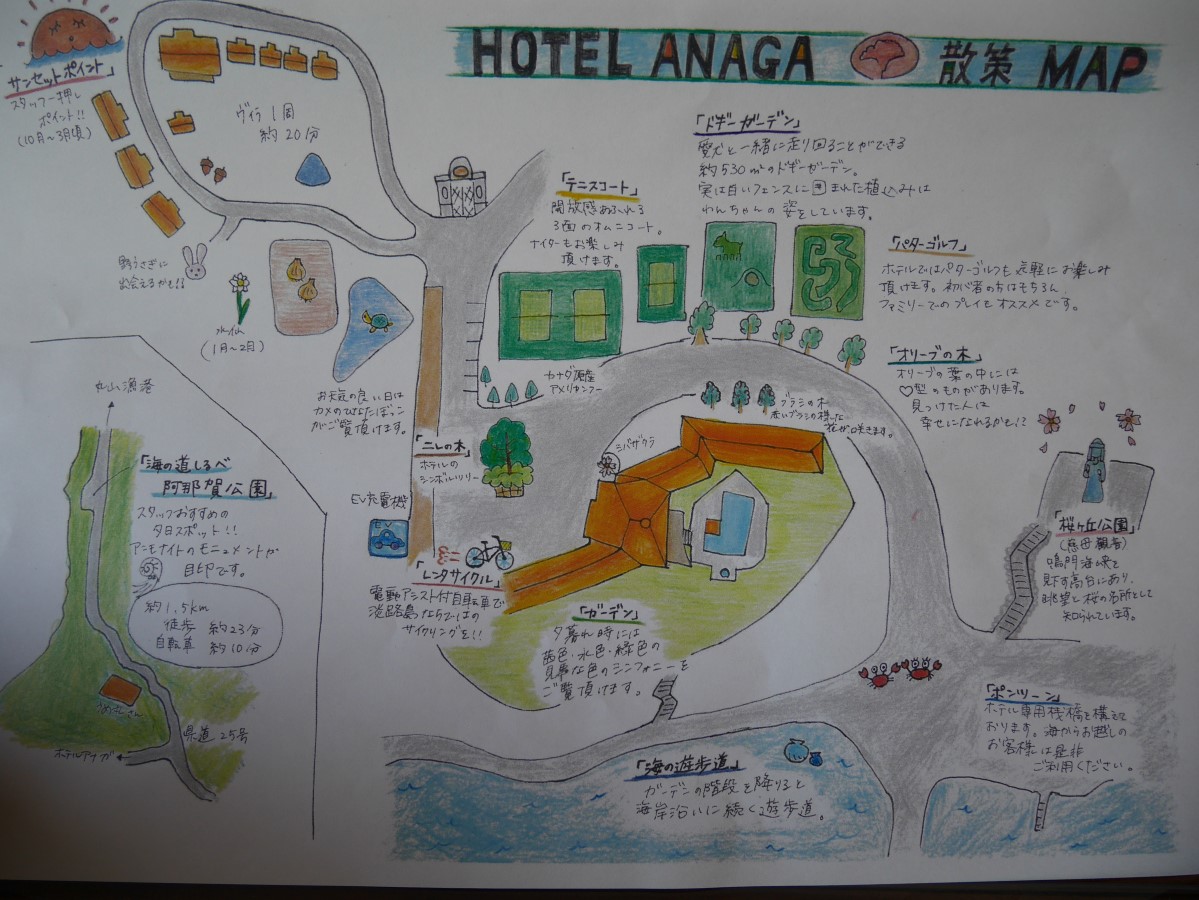 HOTEL ANAGA 散策 MAP
「サンセットポイント」
スタッフ一押し
ポイント!!
(10月〜3月頃)
ヴィラ1周
約20分
野うさぎに
出会えるかも!!
水仙
(1月〜2月)
お天気の良い日は
カメのひなたぼっこ
がご覧頂けます。
「テニスコート」
開放感あふれる
3面のオムニコート。
ナイターもお楽しみ
頂けます。
「ドギーガーデン」
愛犬と一緒に走り回ることができる
約530㎡のドギーガーデン。
実は白いフェンスに囲まれた植込みは
わんちゃんの姿をしています。
「パターゴルフ」
ホテルではパターゴルフも気軽にお楽しみ
頂けます。初心者の方はもちろん
ファミリーでのプレイもオススメです。
「オリーブの木」
オリーブの葉の中には
♡型のものがあります。
見つけた人は
幸せになれるかも!?
カナダ原産
アメリカンファー
ブラシの木
赤いブラシの様な
花が咲きます。
シバザクラ
「ニレの木」
ホテルの
シンボルツリー
EV充電機
EV
「レンタサイクル」
電動アシスト付自転車で
淡路島ならではの
サイクリングを!!
「ガーデン」
夕暮れ時には
茜色・水色・緑色の
見事な色のシンフォニーを
ご覧頂けます。
「桜ヶ丘公園」
鳴門海峡を
見下す高台にあり、
眺望と桜の名所として
知られています。
「ポンツーン」
ホテル専用桟橋を構えて
おります。海からお越しの
お客様は是非
ご利用ください。
「海の遊歩道」
ガーデンの階段を降りると
海岸沿いに続く遊歩道。
丸山漁港
「海の道しるべ
阿那賀公園」
スタッフおすすめの
夕日スポット!!
アンモナイトのモニュメントが
目印です。
約1.5km
徒歩 約23分
自転車 約10分
県道25号
ホテルアナガ